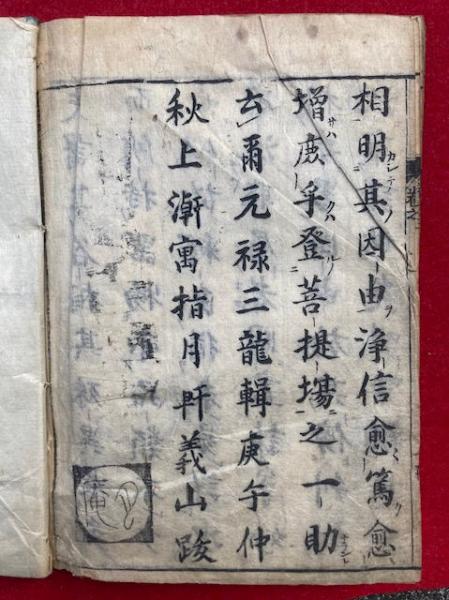 相明其因由浄信愈篤愈
増庶乎登菩提場之一助
云爾元禄三龍輯庚午仲
秋上澣寓指月軒義山跋